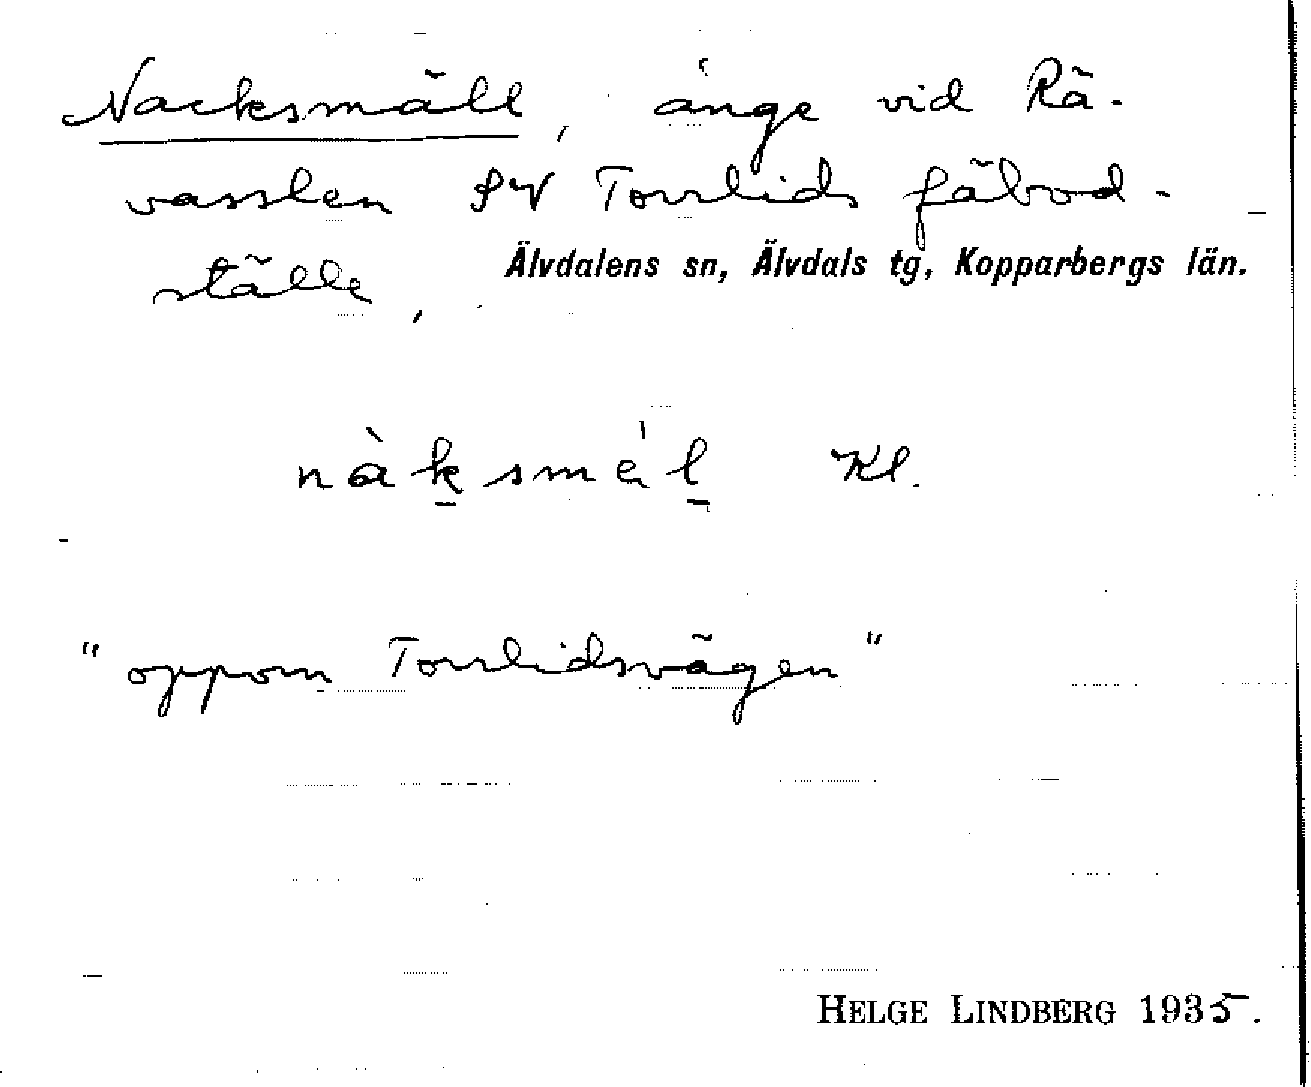 Nacksmäll, änge vid Rä-
vasslen SV Torrlids fäbod-
ställe, Älvdalens sn, Älvdals tg, Kopparbergs län.
Kl.
"oppom Torrlidsvägen"
HELGE LINDBERG 1935.